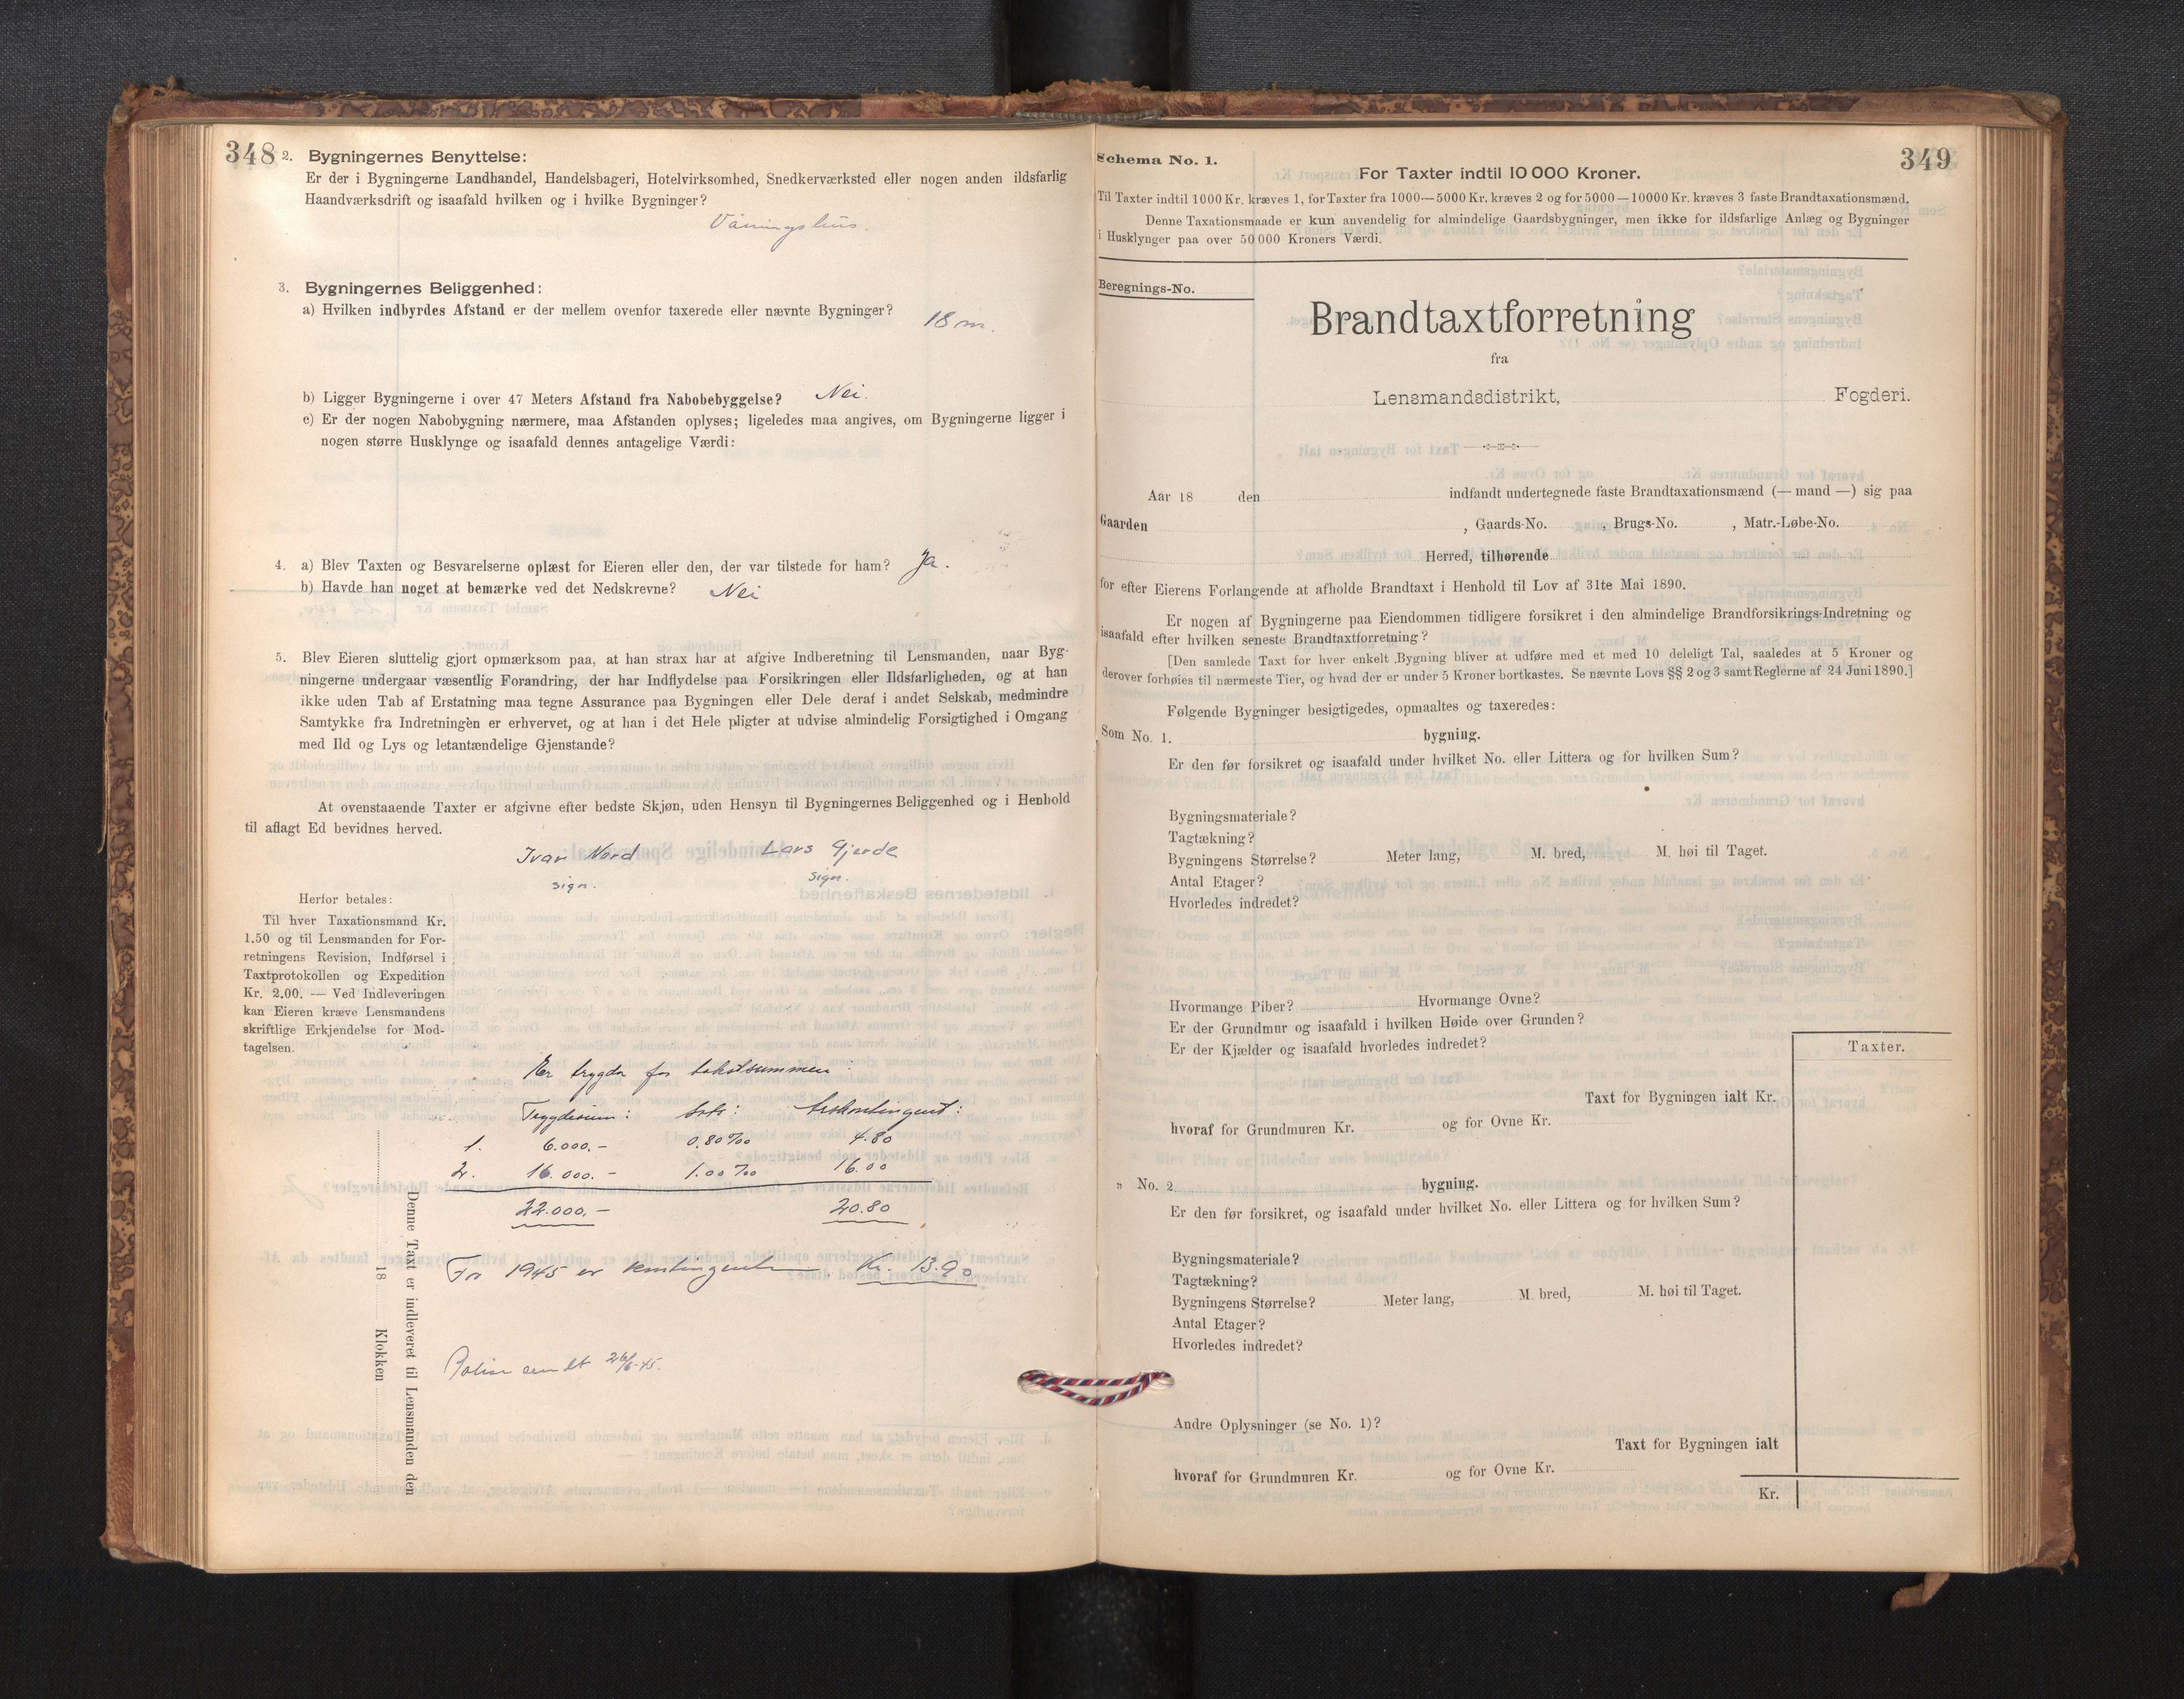 348
2. Bygningernes Benyttelse:
Er der i Bygningerne Landhandel, Handelsbageri, Hotelvirksomhed, Snedkerværksted eller nogen anden ildsfarlig
Haandværksdrift og isaafald hvilken og i hvilke Bygninger?
Våningshus.
3. Bygningernes Beliggenhed:
a) Hvilken indbyrdes Afstand er der mellem ovenfor taxerede eller nævnte Bygninger? 18 m.
b) Ligger Bygningerne i over 47 Meters Afstand fra Nabobebyggelse? Nei.
c) Er der nogen Nabobygning nærmere, maa Afstanden oplyses; ligeledes maa angives, om Bygningerne ligger i
nogen større Husklynge og isaafald dennes antagelige Værdi:
4. a) Blev Taxten og Besvarelserne oplæst for Eieren eller den, der var tilstede for ham? Ja.
b) Havde han noget at bemærke ved det Nedskrevne? Nei
5. Blev Eieren sluttelig gjort opmærksom paa, at han strax har at afgive Indberetning til Lensmanden, naar Byg-
ningerne undergaar væsentlig Forandring, der har Indflydelse paa Forsikringen eller Ildsfarligheden, og at han
ikke uden Tab af Erstatning maa tegne Assurance paa Bygningen eller Dele deraf i andet Selskab, medmindre
Samtykke fra Indretningen er erhvervet, og at han i det Hele pligter at udvise almindelig Forsigtighed i Omgang
med Ild og Lys og letantændelige Gjenstande?
At ovenstaaende Taxter er afgivne efter bedste Skjøn, uden Hensyn til Bygningernes Beliggenhed og i Henhold
til aflagt Ed bevidnes herved.
Ivar Nord Lars Gjerde
sign. sign.
Herfor betales:
Til hver Taxationsmand Kr.
1.50 og til Lensmanden for For-
retningens Revision, Indførsel i
Taxtprotokollen og Expedition
Kr. 2.00. — Ved Indleveringen
kan Eieren kræve Lensmandens
skriftlige Erkjendelse for Mod-
tagelsen.
Denne Taxt er indleveret til Lensmanden den
18 Klokken
Er trygda for takstsummen:
Trygdesum: Sats: Årskontingent:
1. 6.000.- 0.80‰ 4.80
2. 16.000.- 1.00‰ 16.00
22.000.- 20.80
For 1945 er kontingenten Kr. 13.90
Polise sendt 26/6-45.
349
Schema No. 1.
For Taxter indtil 10 000 Kroner.
Til Taxter indtil 1000 Kr. kræves 1, for Taxter fra 1000—5000 Kr. kræves 2 og for 5000—10000 Kr. kræves 3 faste Brandtaxationsmænd.
Denne Taxationsmaade er kun anvendelig for almindelige Gaardsbygninger, men ikke for ildsfarlige Anlæg og Bygninger
i Husklynger paa over 50 000 Kroners Værdi.
Beregnings-No.
Brandtaxtforretning
fra
Lensmandsdistrikt, Fogderi.
Aar 18 den indfandt undertegnede faste Brandtaxationsmænd (— mand —) sig paa
Gaarden , Gaards-No. , Brugs-No. , Matr.-Løbe-No.
Herred, tilhørende
for efter Eierens Forlangende at afholde Brandtaxt i Henhold til Lov af 31te Mai 1890.
Er nogen af Bygningerne paa Eiendommen tidligere forsikret i den almindelige Brandforsikrings-Indretning og
isaafald efter hvilken seneste Brandtaxtforretning?
[Den samlede Taxt for hver enkelt Bygning bliver at udføre med et med 10 deleligt Tal, saaledes at 5 Kroner og
derover forhøies til nærmeste Tier, og hvad der er under 5 Kroner bortkastes. Se nævnte Lovs §§ 2 og 3 samt Reglerne af 24 Juni 1890.]
Følgende Bygninger besigtigedes, opmaaltes og taxeredes:
Som No. 1. bygning.
Er den før forsikret og isaafald under hvilket No. eller Littera og for hvilken Sum?
Bygningsmateriale?
Tagtækning?
Bygningens Størrelse? Meter lang, M. bred, M. høi til Taget.
Antal Etager?
Hvorledes indredet?
Hvormange Piber? Hvormange Ovne?
Er der Grundmur og isaafald i hvilken Høide over Grunden?
Er der Kjælder og isaafald hvorledes indredet?
Taxter.
Taxt for Bygningen ialt Kr.
hvoraf for Grundmuren Kr. og for Ovne Kr.
„ No. 2 bygning.
Er den før forsikret, og isaafald under hvilket No. eller Littera og for hvilken Sum?
Bygningsmateriale?
Tagtækning?
Bygningens Størrelse? Meter lang, M. bred, M. høi til Taget.
Antal Etager?
Hvorledes indredet?
Andre Oplysninger (se No. 1)?
Taxt for Bygningen ialt
hvoraf for Grundmuren Kr. og for Ovne Kr.
Kr.